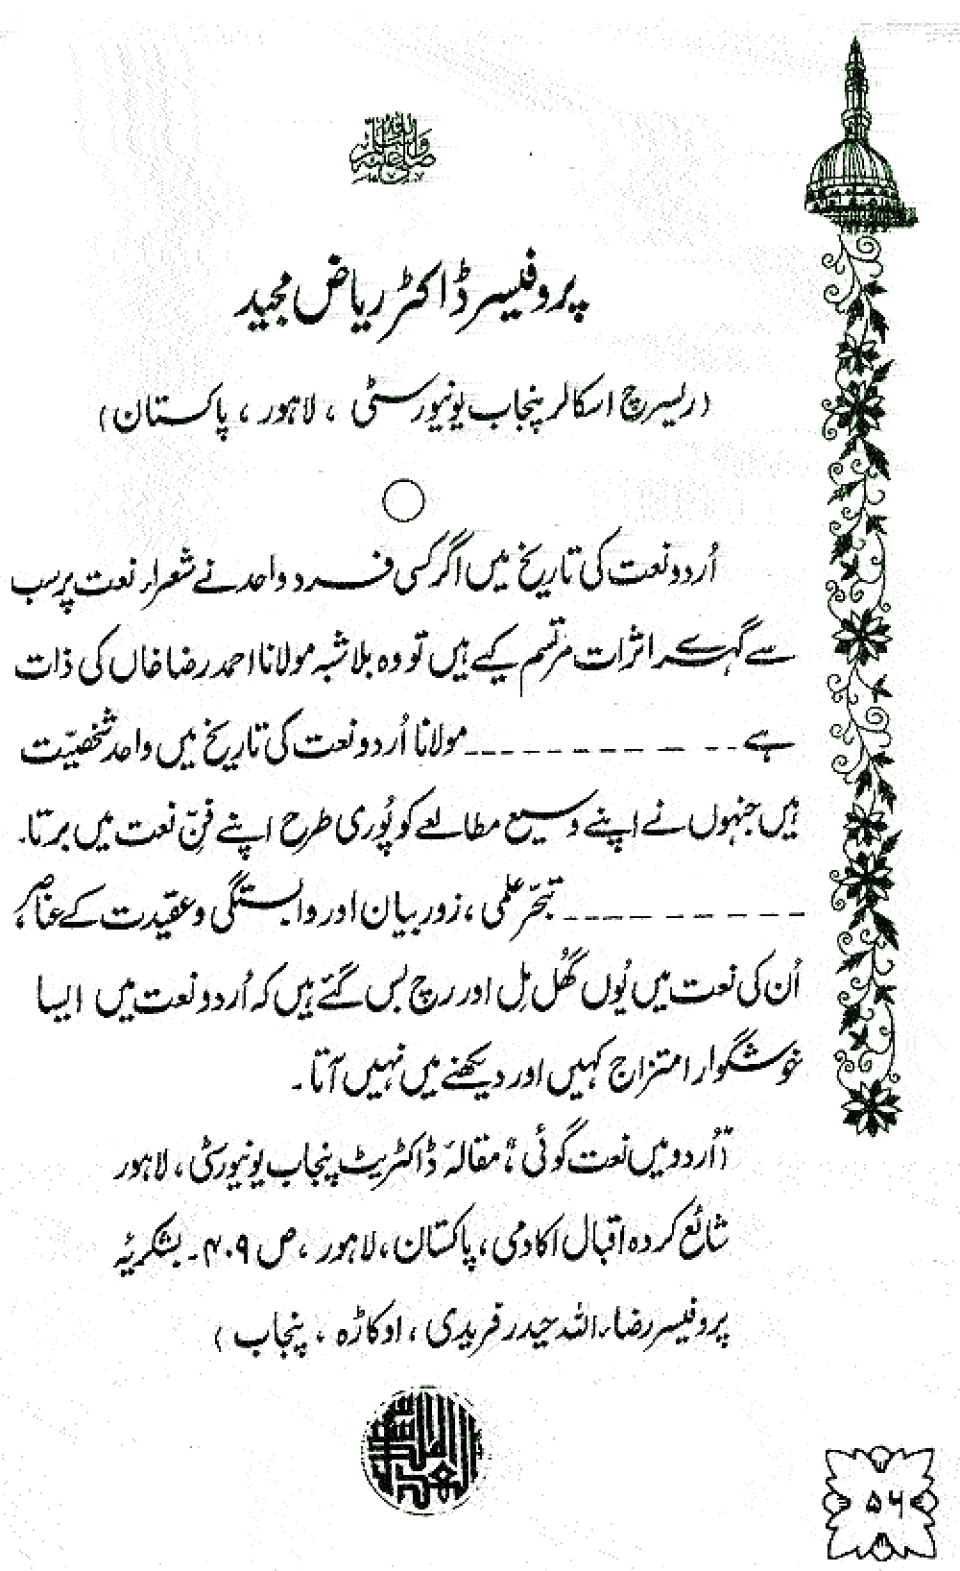 صلی اللہ علیہ وسلم
پروفیسر ڈاکٹر ریاض مجید
(ریسرچ اسکالر پنجاب یونیورسٹی ، لاہور ، پاکستان)
اُردو نعت کی تاریخ میں اگر کسی فرد واحد نے شعراء نعت پر سب
سے گہرے اثرات مرتسم کیے ہیں تو وہ بلا شبہ مولانا احمد رضا خاں کی ذات
ہے ۔۔۔۔۔۔۔۔۔۔ مولانا اُردو نعت کی تاریخ میں واحد شخصیّت
ہیں جنہوں نے اپنے وسیع مطالعے کو پُوری طرح اپنے فنِّ نعت میں برتا۔
۔۔۔۔۔۔۔۔۔۔ تبحّرِ علمی ، زور بیان اور وابستگی و عقیدت کے عناصر ،
اُن کی نعت میں یُوں گھُل مِل اور رچ بس گئے ہیں کہ اُردو نعت میں ایسا
خوشگوار امتزاج کہیں اور دیکھنے میں نہیں آتا ۔
("اُردو میں نعت گوئی" ، مقالہ ڈاکٹریٹ پنجاب یونیورسٹی ، لاہور
شائع کردہ اقبال اکادمی ، پاکستان ، لاہور ، ص ۴۰۹ ۔ بشکریہ
پروفیسر رضاء اللہ حیدر فریدی ، اوکاڑہ ، پنجاب )
۵۶